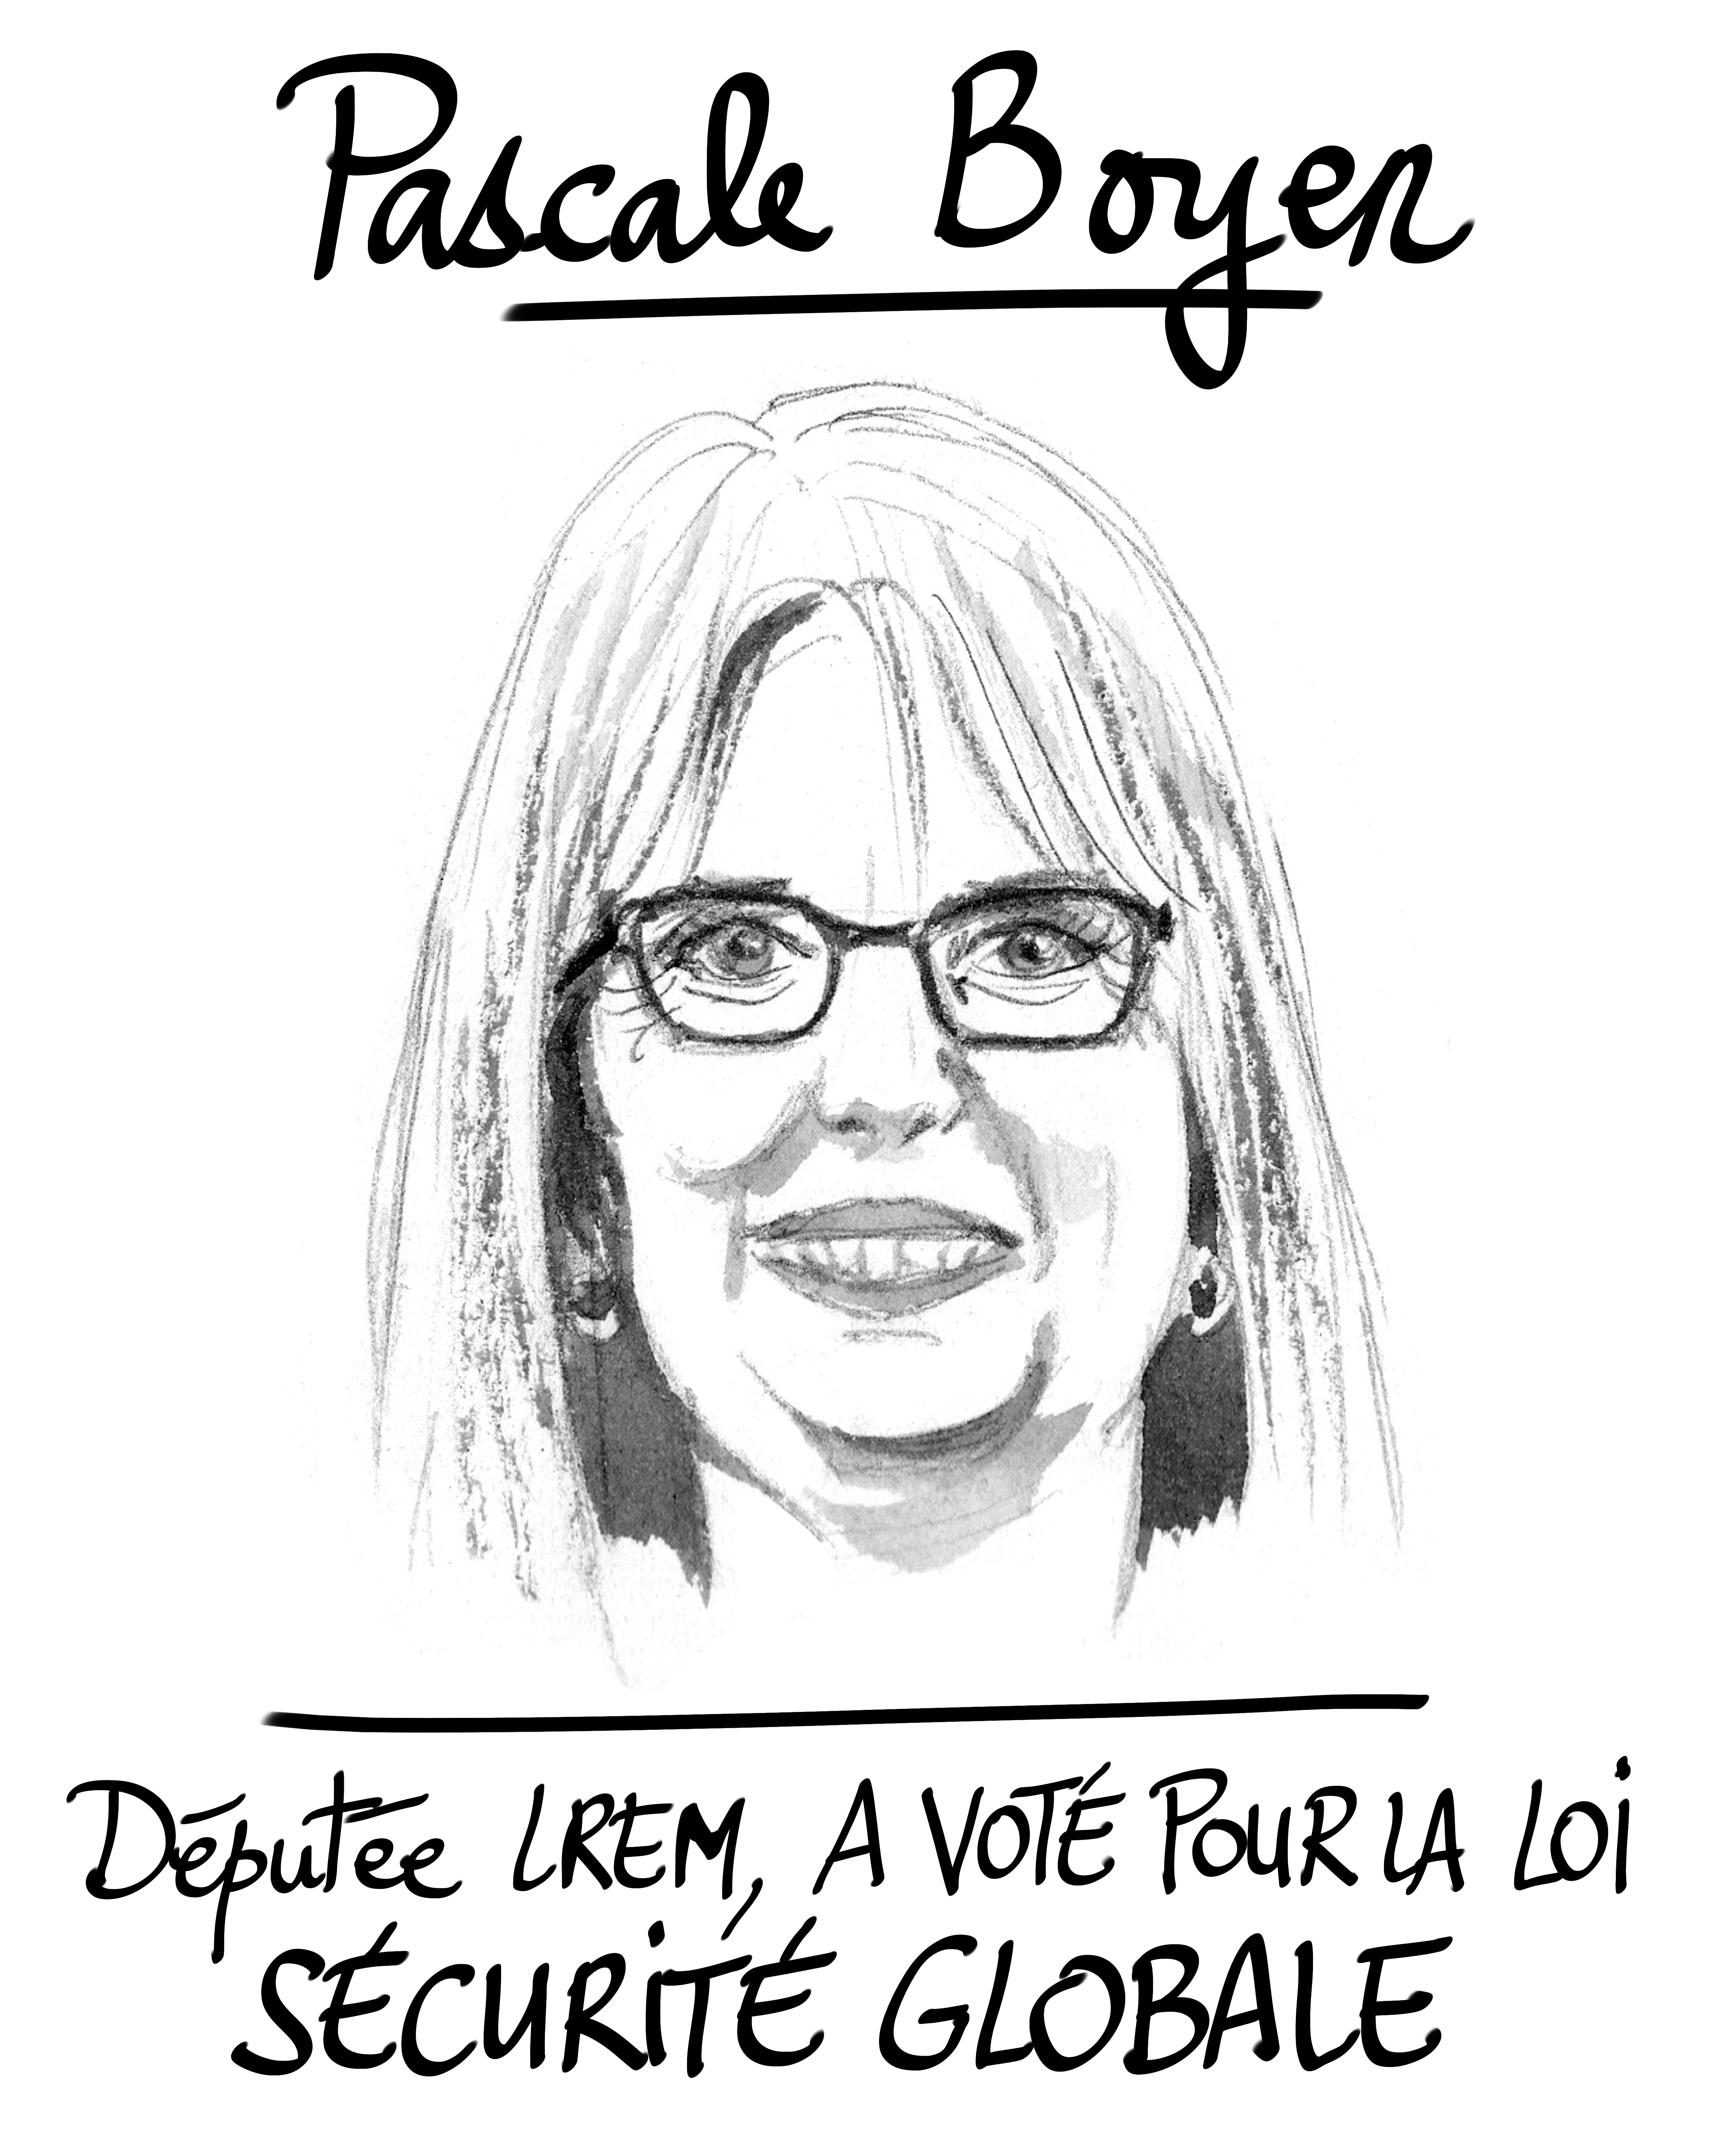 Pascale Boyer
Députée LREM, A VOTÉ POUR LA LOI
SÉCURITÉ GLOBALE